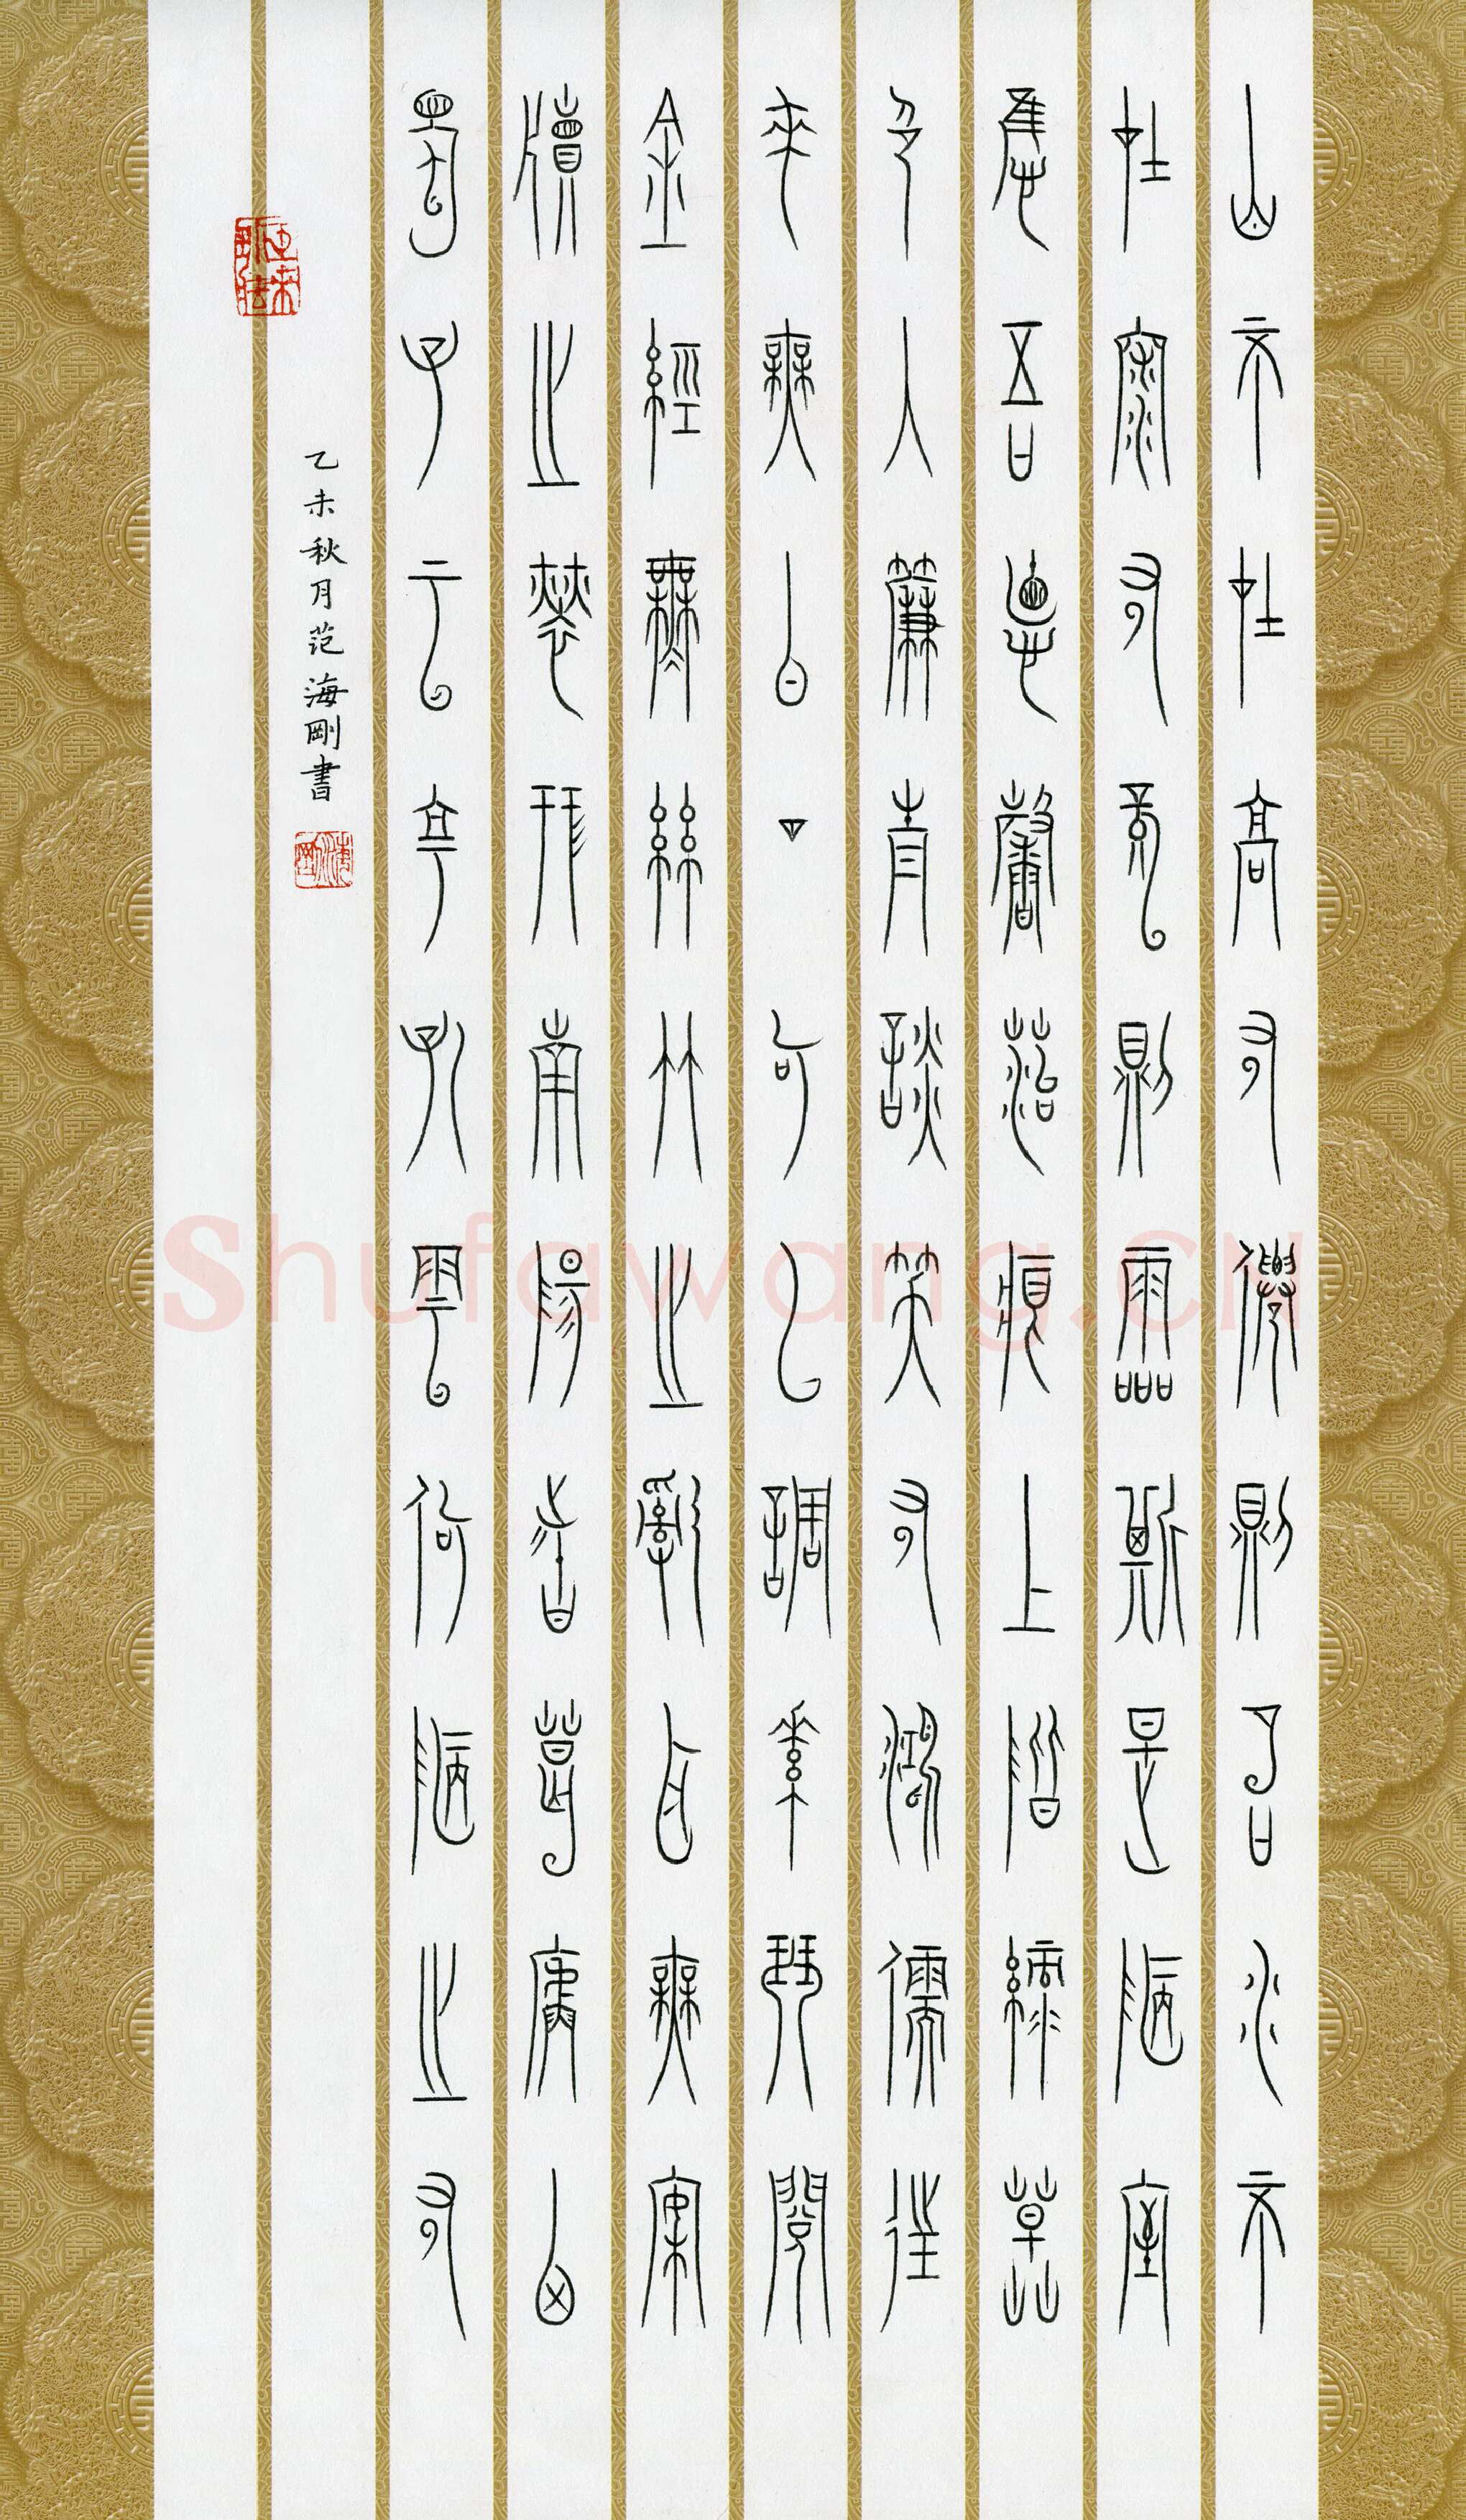 山不在高有僊則名水不
在深有龍則靈斯是陋室
惟吾悳馨菭痕上階綠草
色入簾青談笑有鴻儒往
來無白丁可以調素琴閱
金經無絲竹之亂耳無案
牘之勞形南陽者葛廬西
蜀子云亭孔雲何陋之有
乙未秋月范海剛書
海剛
Shufawang.CN